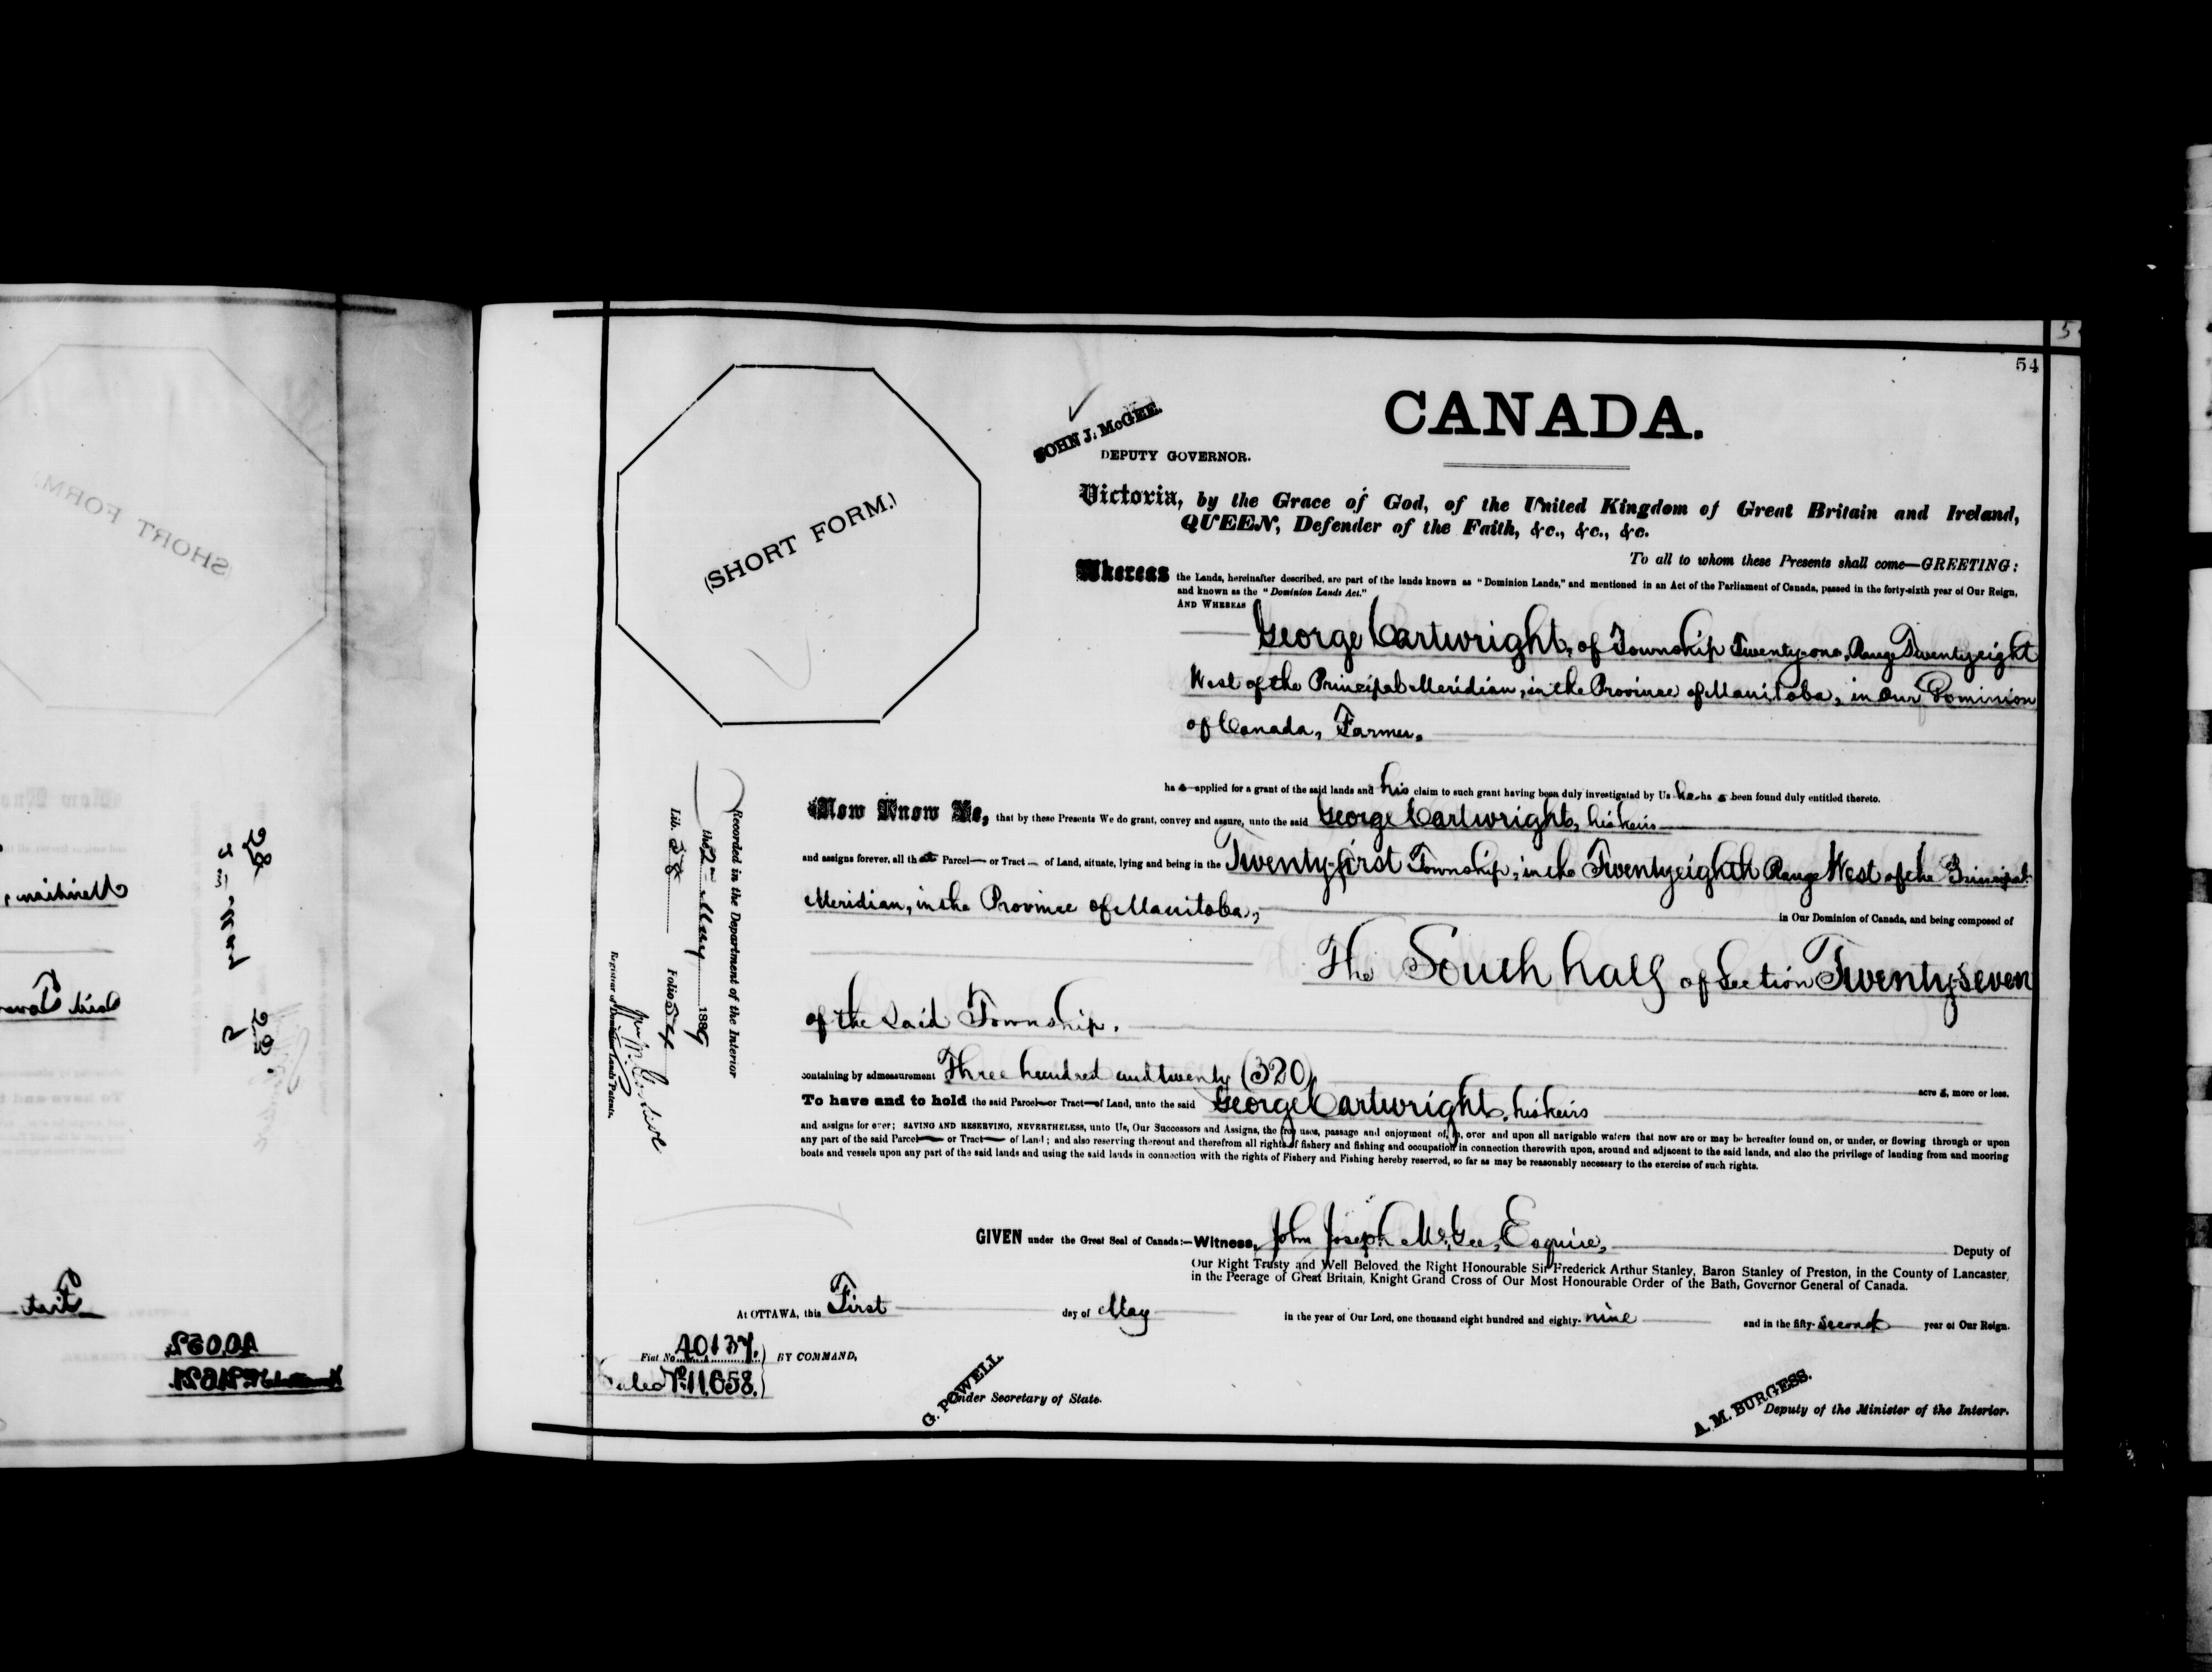 54
CANADA.
JOHN J. McGEE.
DEPUTY GOVERNOR.
(SHORT FORM.)
Victoria, by the Grace of God, of the United Kingdom of Great Britain and Ireland,
QUEEN, Defender of the Faith, &c., &c., &c.
To all to whom these Presents shall come—GREETING:
Whereas the Lands, hereinafter described, are part of the lands known as "Dominion Lands," and mentioned in an Act of the Parliament of Canada, passed in the forty-sixth year of Our Reign,
and known as the "Dominion Lands Act."
AND WHEREAS
George Cartwright, of Township Twenty-one, Range Twenty eight
West of the Principal Meridian, in the Province of Manitoba, in Our Dominion
of Canada, Farmer.
ha s applied for a grant of the said lands and his claim to such grant having been duly investigated by Us he ha s been found duly entitled thereto.
Now Know Ye, that by these Presents We do grant, convey and assure, unto the said George Cartwright, his heirs
and assigns forever, all that Parcel or Tract of Land, situate, lying and being in the Twenty-first Township, in the Twenty eighth Range West of the Principal
Meridian, in the Province of Manitoba, in Our Dominion of Canada, and being composed of
The South half of Section Twenty-seven
of the said Township.
containing by admeasurement Three hundred and twenty (320) acre s, more or less.
To have and to hold the said Parcel or Tract of Land, unto the said George Cartwright, his heirs
and assigns for ever; SAVING AND RESERVING, NEVERTHELESS, unto Us, Our Successors and Assigns, the free uses, passage and enjoyment of, in, over and upon all navigable waters that now are or may be hereafter found on, or under, or flowing through or upon
any part of the said Parcel or Tract of Land; and also reserving thereout and therefrom all rights of fishery and fishing and occupation in connection therewith upon, around and adjacent to the said lands, and also the privilege of landing from and mooring
boats and vessels upon any part of the said lands and using the said lands in connection with the rights of Fishery and Fishing hereby reserved, so far as may be reasonably necessary to the exercise of such rights.
GIVEN under the Great Seal of Canada:—Witness, John Joseph McGee, Esquire, Deputy of
Our Right Trusty and Well Beloved the Right Honourable Sir Frederick Arthur Stanley, Baron Stanley of Preston, in the County of Lancaster,
in the Peerage of Great Britain, Knight Grand Cross of Our Most Honourable Order of the Bath, Governor General of Canada.
At OTTAWA, this First day of May in the year of Our Lord, one thousand eight hundred and eighty-nine and in the fifty-second year of Our Reign.
Fiat No. 40137. BY COMMAND,
Sales No. 11,658.
G. POWELL
Under Secretary of State.
A. M. BURGESS.
Deputy of the Minister of the Interior.
Recorded in the Department of the Interior
the 2nd May 1889
Lib. 58 Folio 54
Registrar of Dominion Lands Patents.